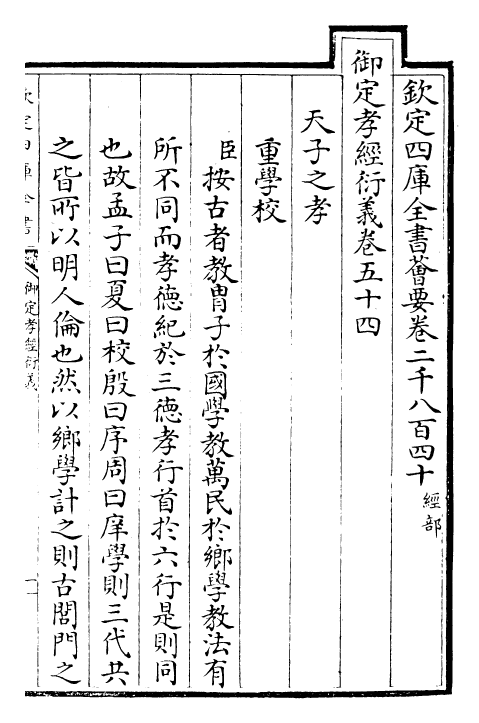 欽定四庫全書薈要卷二千八百四十 經部
御定孝經衍義卷五十四
天子之孝
重學校
臣按古者教胄子於國學教萬民於鄉學教法有
所不同而孝德紀於三德孝行首於六行是則同
也故孟子曰夏曰校殷曰序周曰庠學則三代共
之皆所以明人倫也然以鄉學計之則古閭門之
欽定四庫全書
御定孝經衍義
一